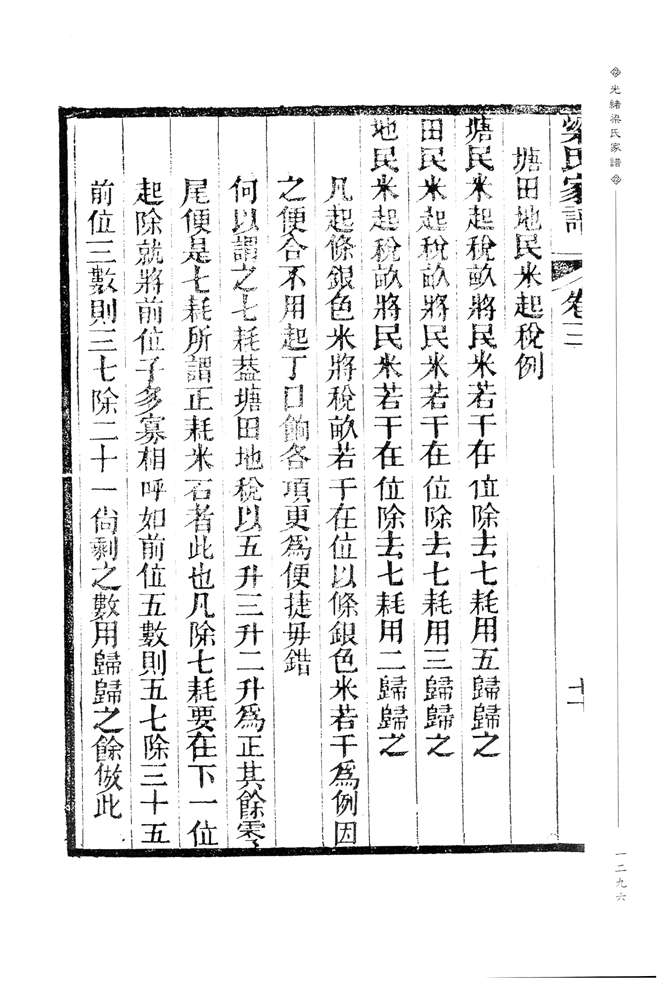 光緒梁氏家譜
梁氏家譜 卷三 十
塘田地民米起稅例
塘民米起稅畝將民米若干在位除去七耗用五歸歸之
田民米起稅畝將民米若干在位除去七耗用三歸歸之
地民米起稅畝將民米若干在位除去七耗用二歸歸之
凡起條銀色米將稅畝若干在位以條銀色米若干爲例因
之便合不用起丁口餉各項更爲便捷毋錯
何以謂之七耗葢塘田地稅以五升三升二升爲正其餘零
尾便是七耗所謂正耗米石者此也凡除七耗要在下一位
起除就將前位子多寡相呼如前位五數則五七除三十五
前位三數則三七除二十一尙剩之數用歸歸之餘倣此
一二九六